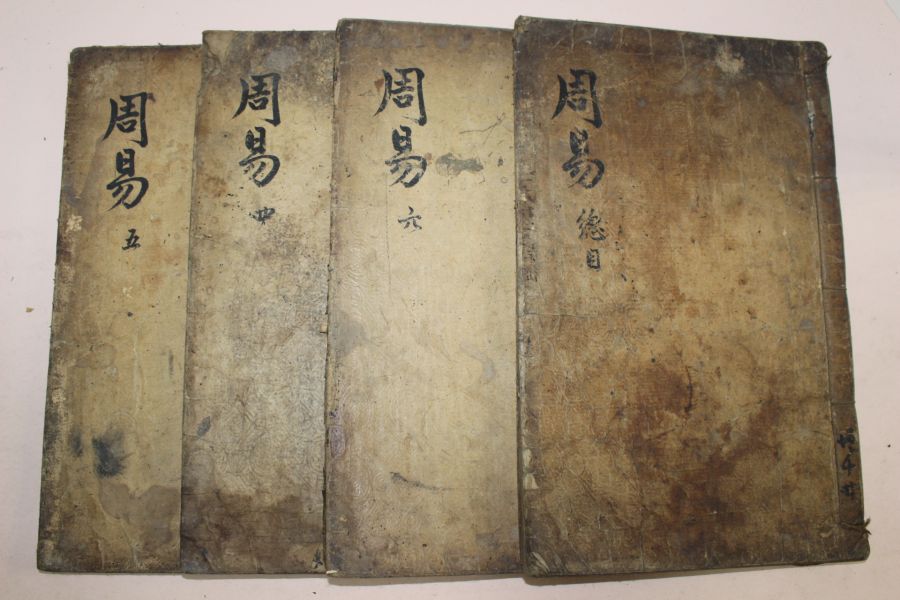 周易 緫目
周易 六
周易 四
周易 五